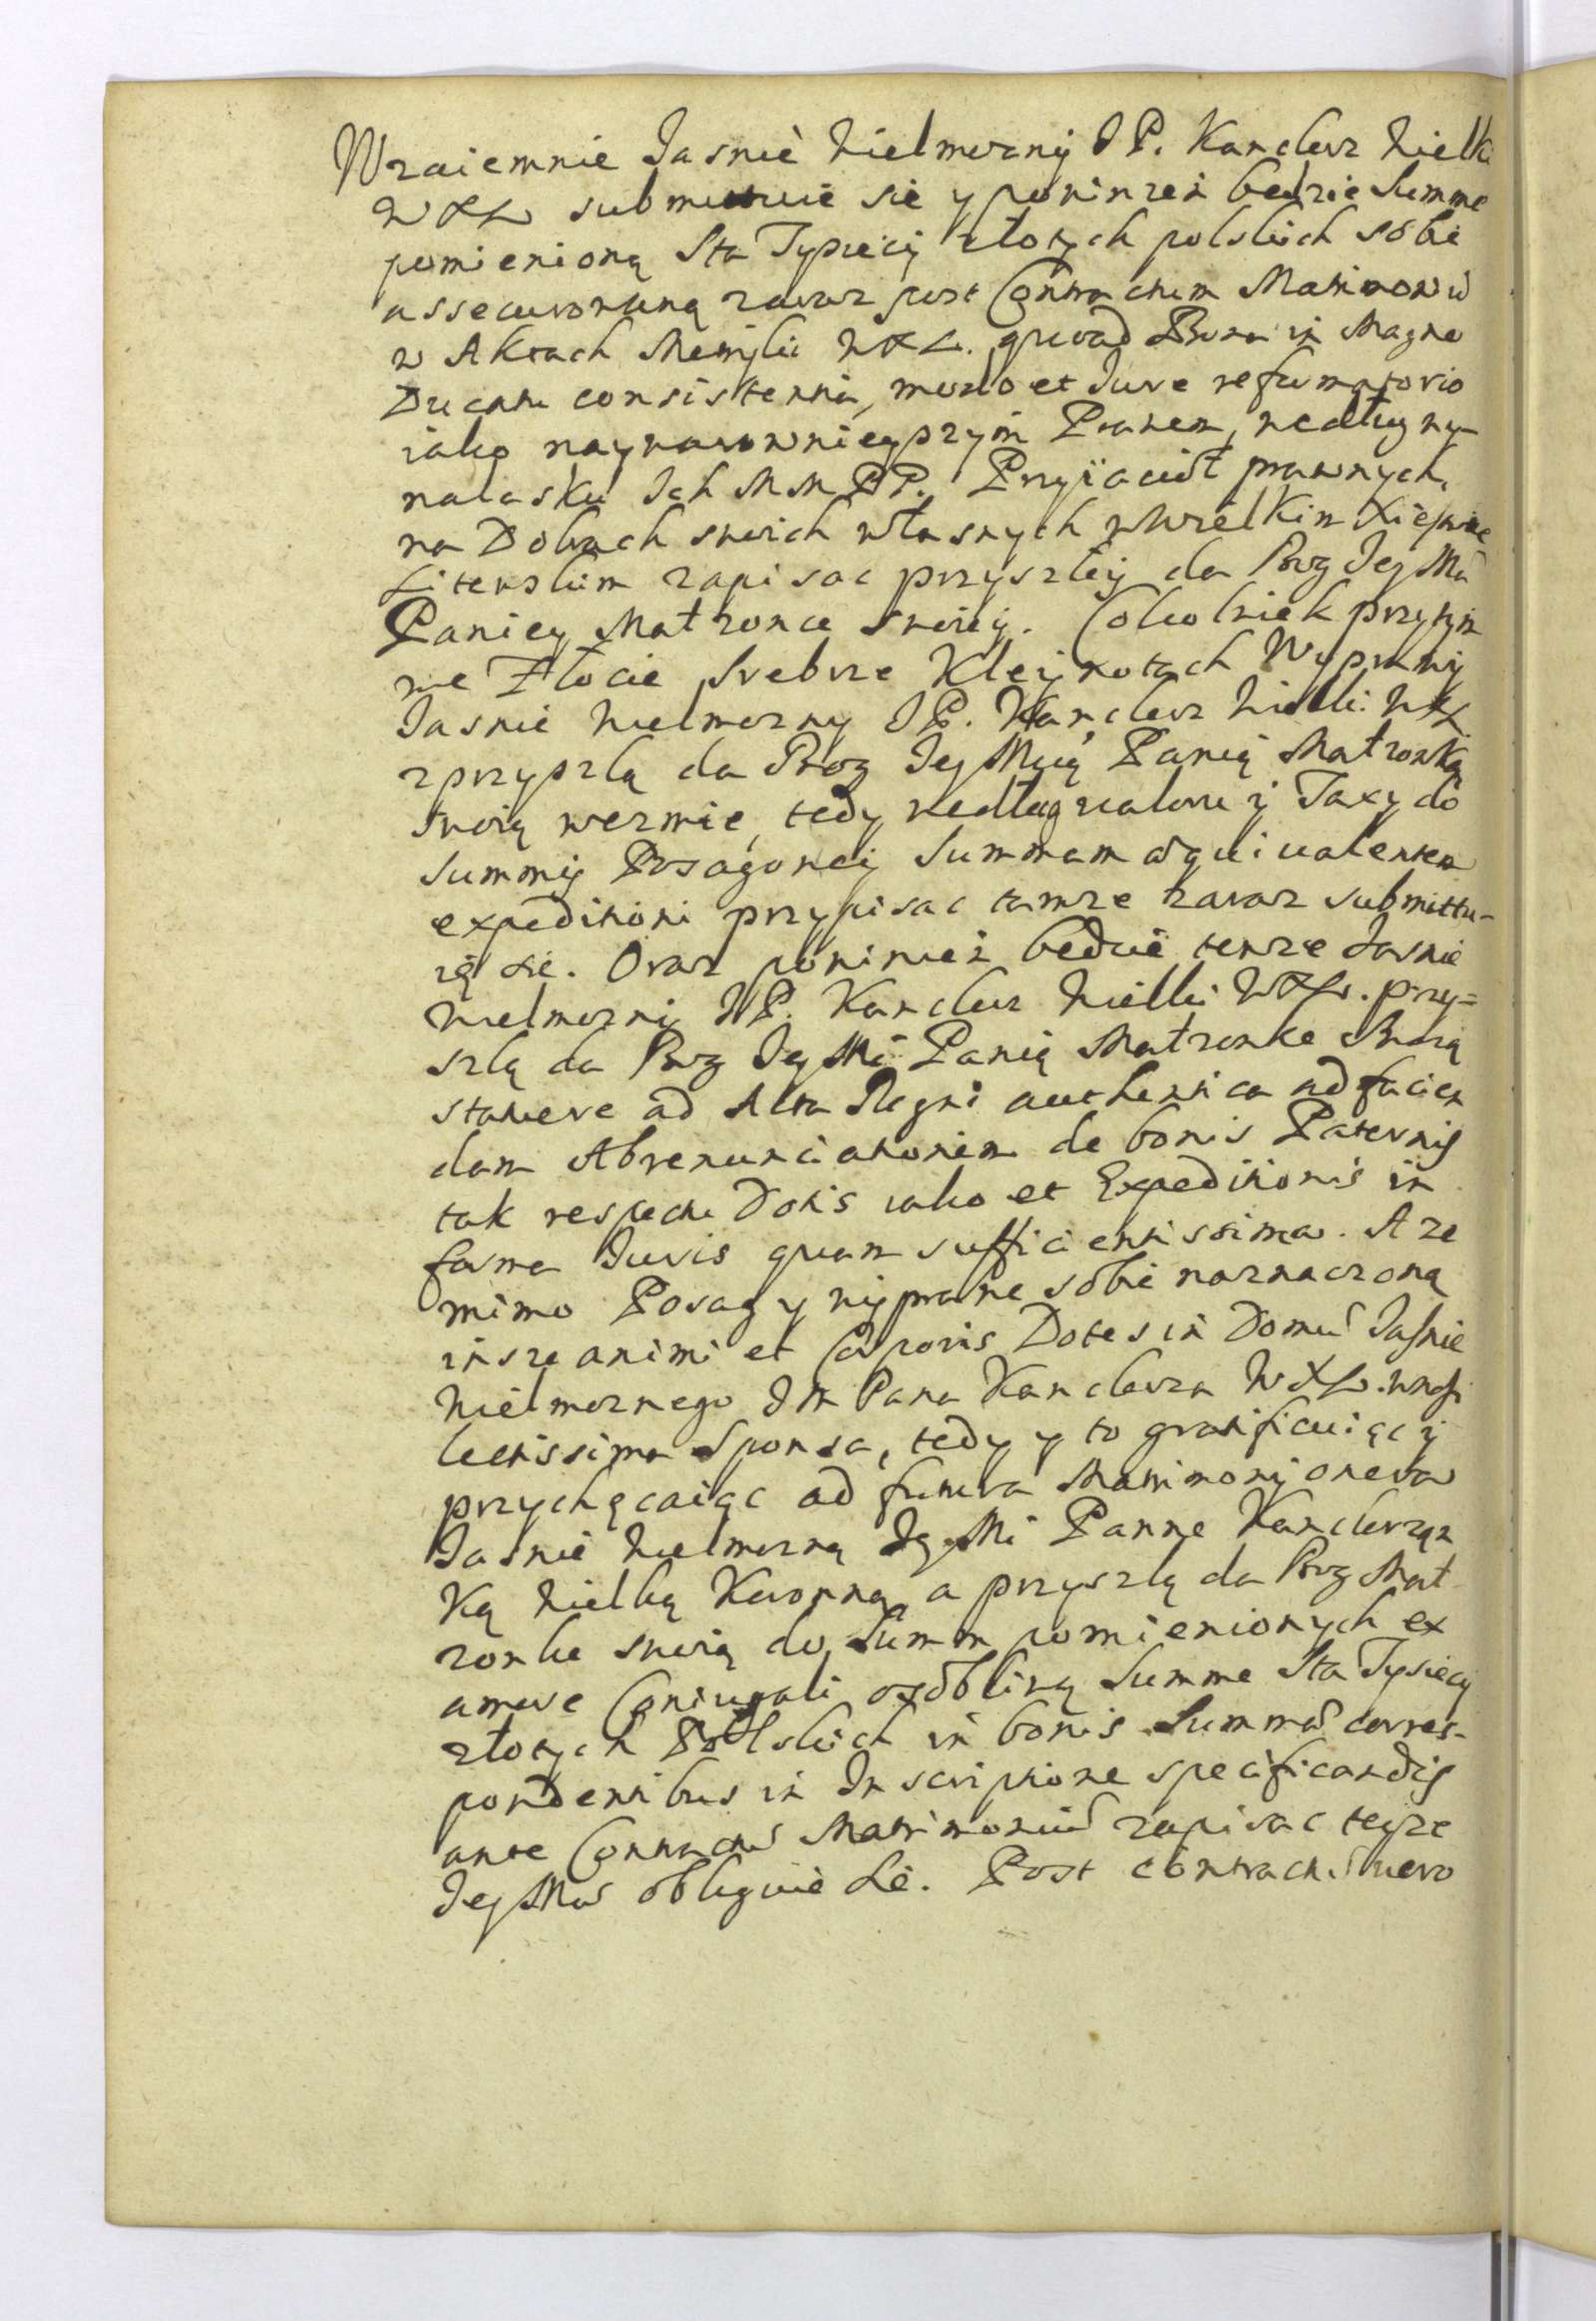 Wzaiemnie Jasnie Wielmozny J P. Kanclerz Wielki
W X L submittuie sie y powinzen bedzie Summe
pomienioną Sta Tysiecy złotych polskich sobie
assecurowaną zaraz post Contractum Matrimonii
w Aktach Metryki W X L. quoad Bona in Magno
Ducatu consistentia, modo et Jure reformatorio
iako naywarownieyszym Prawem, wedlug wy-
nalasku Ich M M P P. Przyiaciół prawnych,
na Dobrach swoich własnych w Wielkim Xięstwie
Litewskim zapisac przyszłey da Bog Jey Mci
Paniey Małzonce swoiey. Cokolwiek przytym
we Złocie, Srebrze Kleynotach Wyprawy
Jasnie Wielmozny J P. Kanclerz Wielki W X L
z przyszlą da Bog Jey Mcią Panią Małzonką
swoią wezmie, tedy wedlug waloru y Taxy do
summy Posagowey Summam æquivalentem
expeditioni przypisac tamze zaraz submittu-
ię sie. Oraz powinien bedzie tenze Jasnie
Wielmozny J P. Kanclerz Wielki W X L. przy=
szlą da Bog Jey Mc Panią Małzonke Swoią
stawere ad Acta Regni authentica ad facien
dam Abrenunciationem de bonis Paternis
tak respectu Dotis iako et Expeditionis in
forma Juris quam sufficientissima. A ze
mimo Posag y wyprawe sobie naznaczoną
insze animi et Corporis Dotes in Domum Jasnie
Wielmoznego J M Pana Kanclerza W X L. wnosi
lectissima Sponsa, tedy y to gratificuiąc y
przychęcaiąc ad futura Matrimonij onera
Jasnie Wielmozną Jey Mc Panne Kanclerzan
ką Wielką Koronną a przyszlą da Bog Mał
zonke swoią do Summ pomienionych ex
amore Coniugali osobliwą Summe Sta Tysiecy
złotych Polskich in bonis Summae corres-
pondentibus in Inscriptione specificandis
ante Contractum Matrimonium zapisac teyze
Jey Mci obliguie sie. Post contractum vero